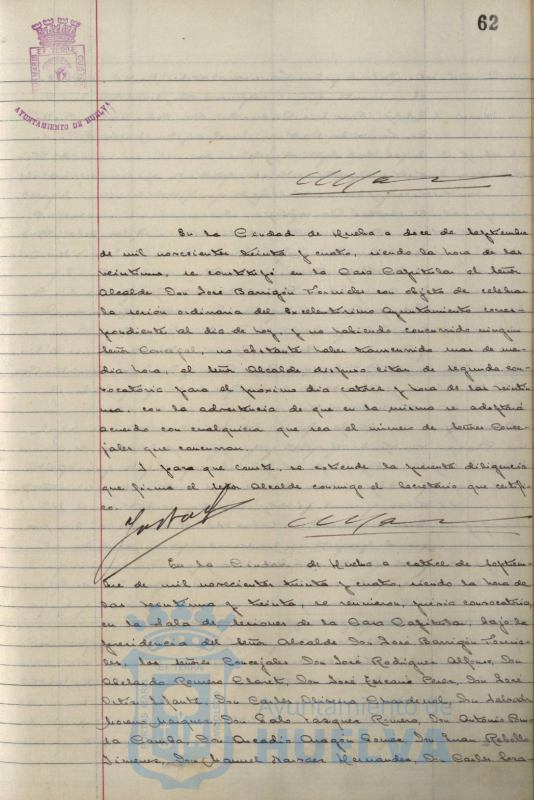 62
AYUNTAMIENTO DE HUELVA
En la Ciudad de Huelva a doce de Septiembre
de mil novecientos treinta y cuatro, siendo la hora de las
veintiuna, se constituyó en la Casa Capitular el Señor
Alcalde Don José Barrigón Fornieles con objeto de celebrar
la sesión ordinaria del Excelentísimo Ayuntamiento corres-
pondiente al día de hoy, y no habiendo concurrido ningún
Señor Concejal, no obstante haber transcurrido mas de me-
dia hora, el Señor Alcalde dispuso citar de segunda con-
vocatoria para el próximo día catorce y hora de las veintiu-
na, con la advertencia de que en la misma se adoptará
acuerdo con cualquiera que sea el número de Señores Conce-
jales que concurran.
Y para que conste, se extiende la presente diligencia
que firma el Señor Alcalde conmigo el Secretario que certifi-
co.
En la Ciudad de Huelva a catorce de Septiem-
bre de mil novecientos treinta y cuatro, siendo la hora de
las veintiuna y treinta, se reunieron, previa convocatoria,
en la Sala de Sesiones de la Casa Capitular, bajo la
presidencia del Señor Alcalde Don José Barrigón Fornie-
les, los Señores Concejales Don José Rodríguez Alfonso, Don
Abelardo Romero Claret, Don José Ponce, Don José
Ortiz Infante, Don Carlos Oliveira, Don Salvador
Moreno Márquez, Don Galo Vázquez Romero, Don Antonio
Don Arcadio Aragón Gómez, Don Juan Rebollo
Jiménez, Don Manuel Narváez Hernández, Don Carlos
Ayuntamiento de
HUELVA